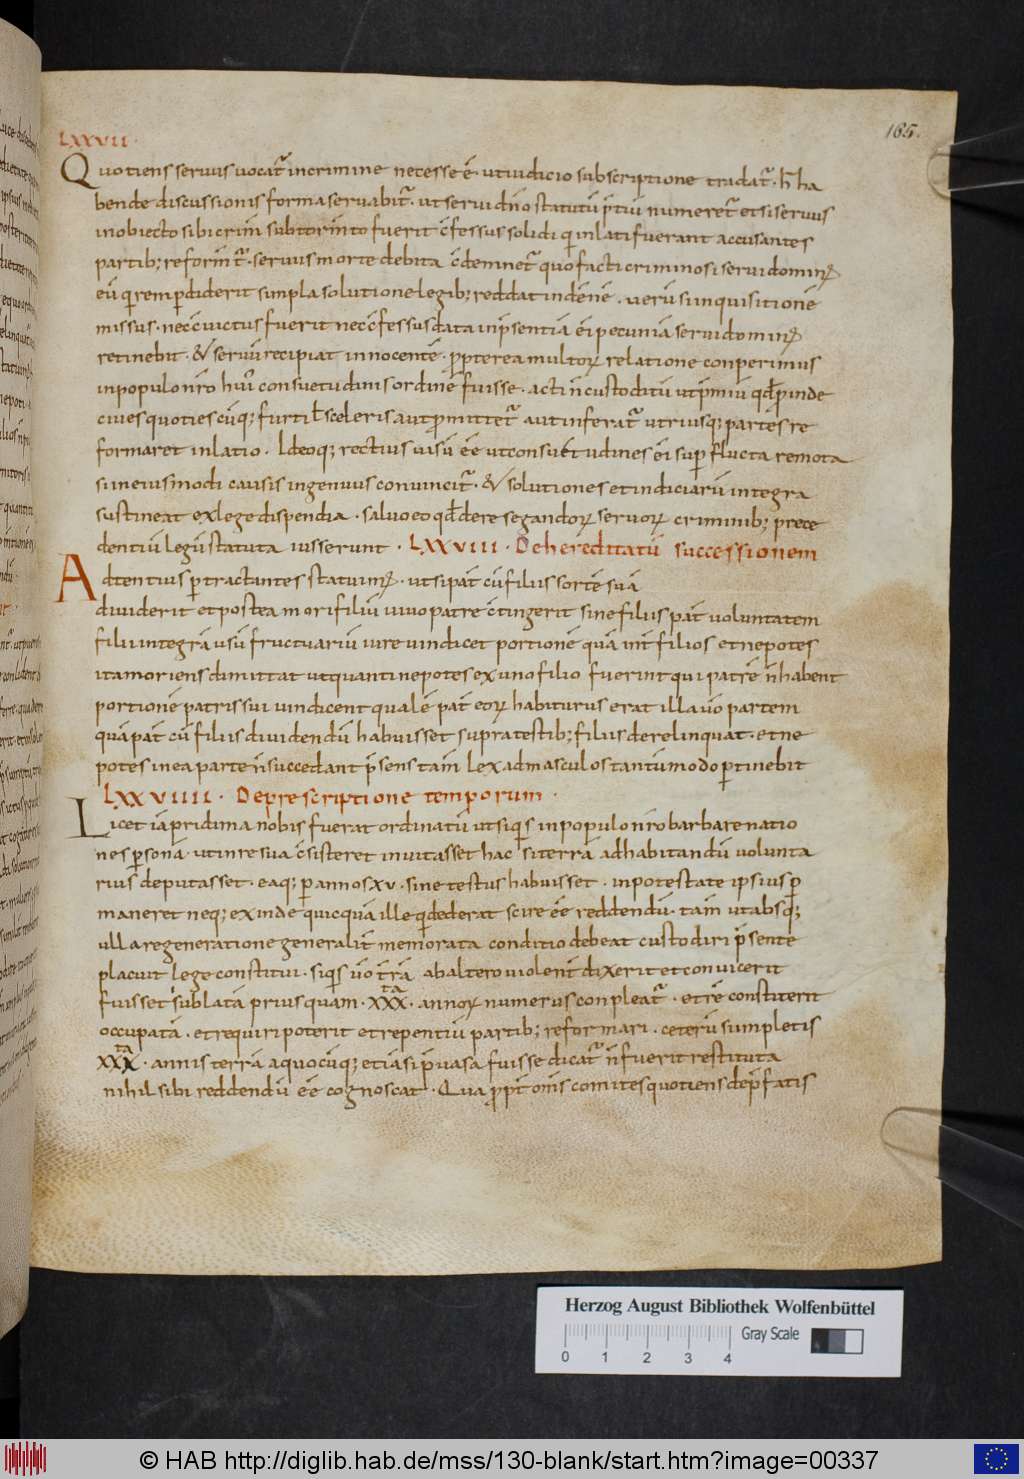 165.
LXXVII·
Quotiens seruus uocat̃ incrimine necesse ẽ· utiudicio subscriptione tradat̃· h̃ ha
bende discussionis forma seruabit̃· ut serui d̃no statutũ p̃tiũ numeret̃ et si seruus
inobiecto sibi crim̃ subtorm̃to fuerit c̃fessus solidi qi inlati fuerant accusantes
partib; reform̃t̃· seruus morte debita c̃demnet̃ quo facti criminosi serui domin
eũ qi rem pdiderit simpla solutione legib; reddat indẽnẽ· uerũ si inquisitionẽ
missus· nec c̃uictus fuerit nec c̃fessus data inp̃sentiã ei pecuniã serui domin
retinebit· & seruũ recipiat innocentẽ· ppterea multoꝝ relatione conperimus
inpopulo nr̃o huĩ consuetudinis ordinẽ fuisse· acti ñ custoditũ ut p̃miũ qd̃ pinde
ciues quotiescũq; furti ł sceleris aut pmittet̃ aut inferat̃ utriusq; partes re
formaret inlatio· Ideoq; rectius uisũ ẽe ut consuetudines ei sup flucta remota
si in eiusmodi causis ingenuus conuincit̃· & solutiones et indiciarũ integra
sustineat ex lege dispendia· saluo eo qd̃ de resegandoꝝ seruoꝝ criminib; prece
dentiũ legũ statuta iusserunt· LXXVIII· De hereditatũ successionem
Adtentius ptractantes statuim· ut si pat̃ cũ filiis sortẽ suã
diuiderit et postea mori filiũ uiuo patre c̃tingerit sine filiis pat̃ uoluntatem
filii integrã usũ fructuariũ iure uindicet portionẽ quã int̃ filios et nepotes
ita moriens dimittat ut quanti nepotes ex uno filio fuerint qui patrẽ ñ habent
portionẽ patris sui uindicent qualẽ pat̃ eoꝝ habiturus erat illa uõ partem
quã pat̃ cũ filiis diuidendũ habuisset supra testib; filiis derelinquat· et ne
potes in ea parte ñ succedant p̃sens tam̃ lex ad masculos tantũmodo ptinebit
LXXVIIII· De prescriptione temporum·
Licet iã pridim a nobis fuerat ordinatũ ut siqis inpopulo nr̃o barbare natio
nes psonã· ut in re sua c̃sisteret inuitasset hac si terrã ad habitandũ uolunta
rius deputasset· eaq; p annos xv· sine testus habuisset· inpotestate ipsius p
maneret neq; exinde quicquã ille qi dederat scire ẽe reddendũ· tam̃ ut absq;
ulla regeneratione generalit̃ memorata conditio debeat custodiri p̃sente
placuit lege constitui· siqis uõ t̃rã ab altero uiolent̃ dixerit et conuicerit
fuisset sublatã priusquam· xxx̃· annoꝝ numerus conpleat̃· et rẽ constiterit
occupatã· et requiri poterit et repentiũ partib; reformari· ceterũ si impletis
xxx· annis terrã a quocũq; etiã si puasa fuisse dicat̃ ñ fuerit restituta
nihil sibi reddendũ ẽe cognoscat· Qua ppt̃ om̃s comites quotiens dep̃fatis
Herzog August Bibliothek Wolfenbüttel
Gray Scale
0 1 2 3 4
© HAB http://diglib.hab.de/mss/130-blank/start.htm?image=00337